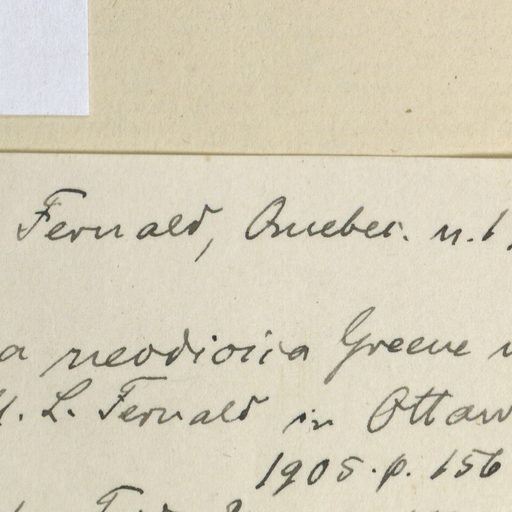 Fernald, Quebec. n. 1
a neodioica Greene v
M. L. Fernald in Ottaw
1905. p. 156